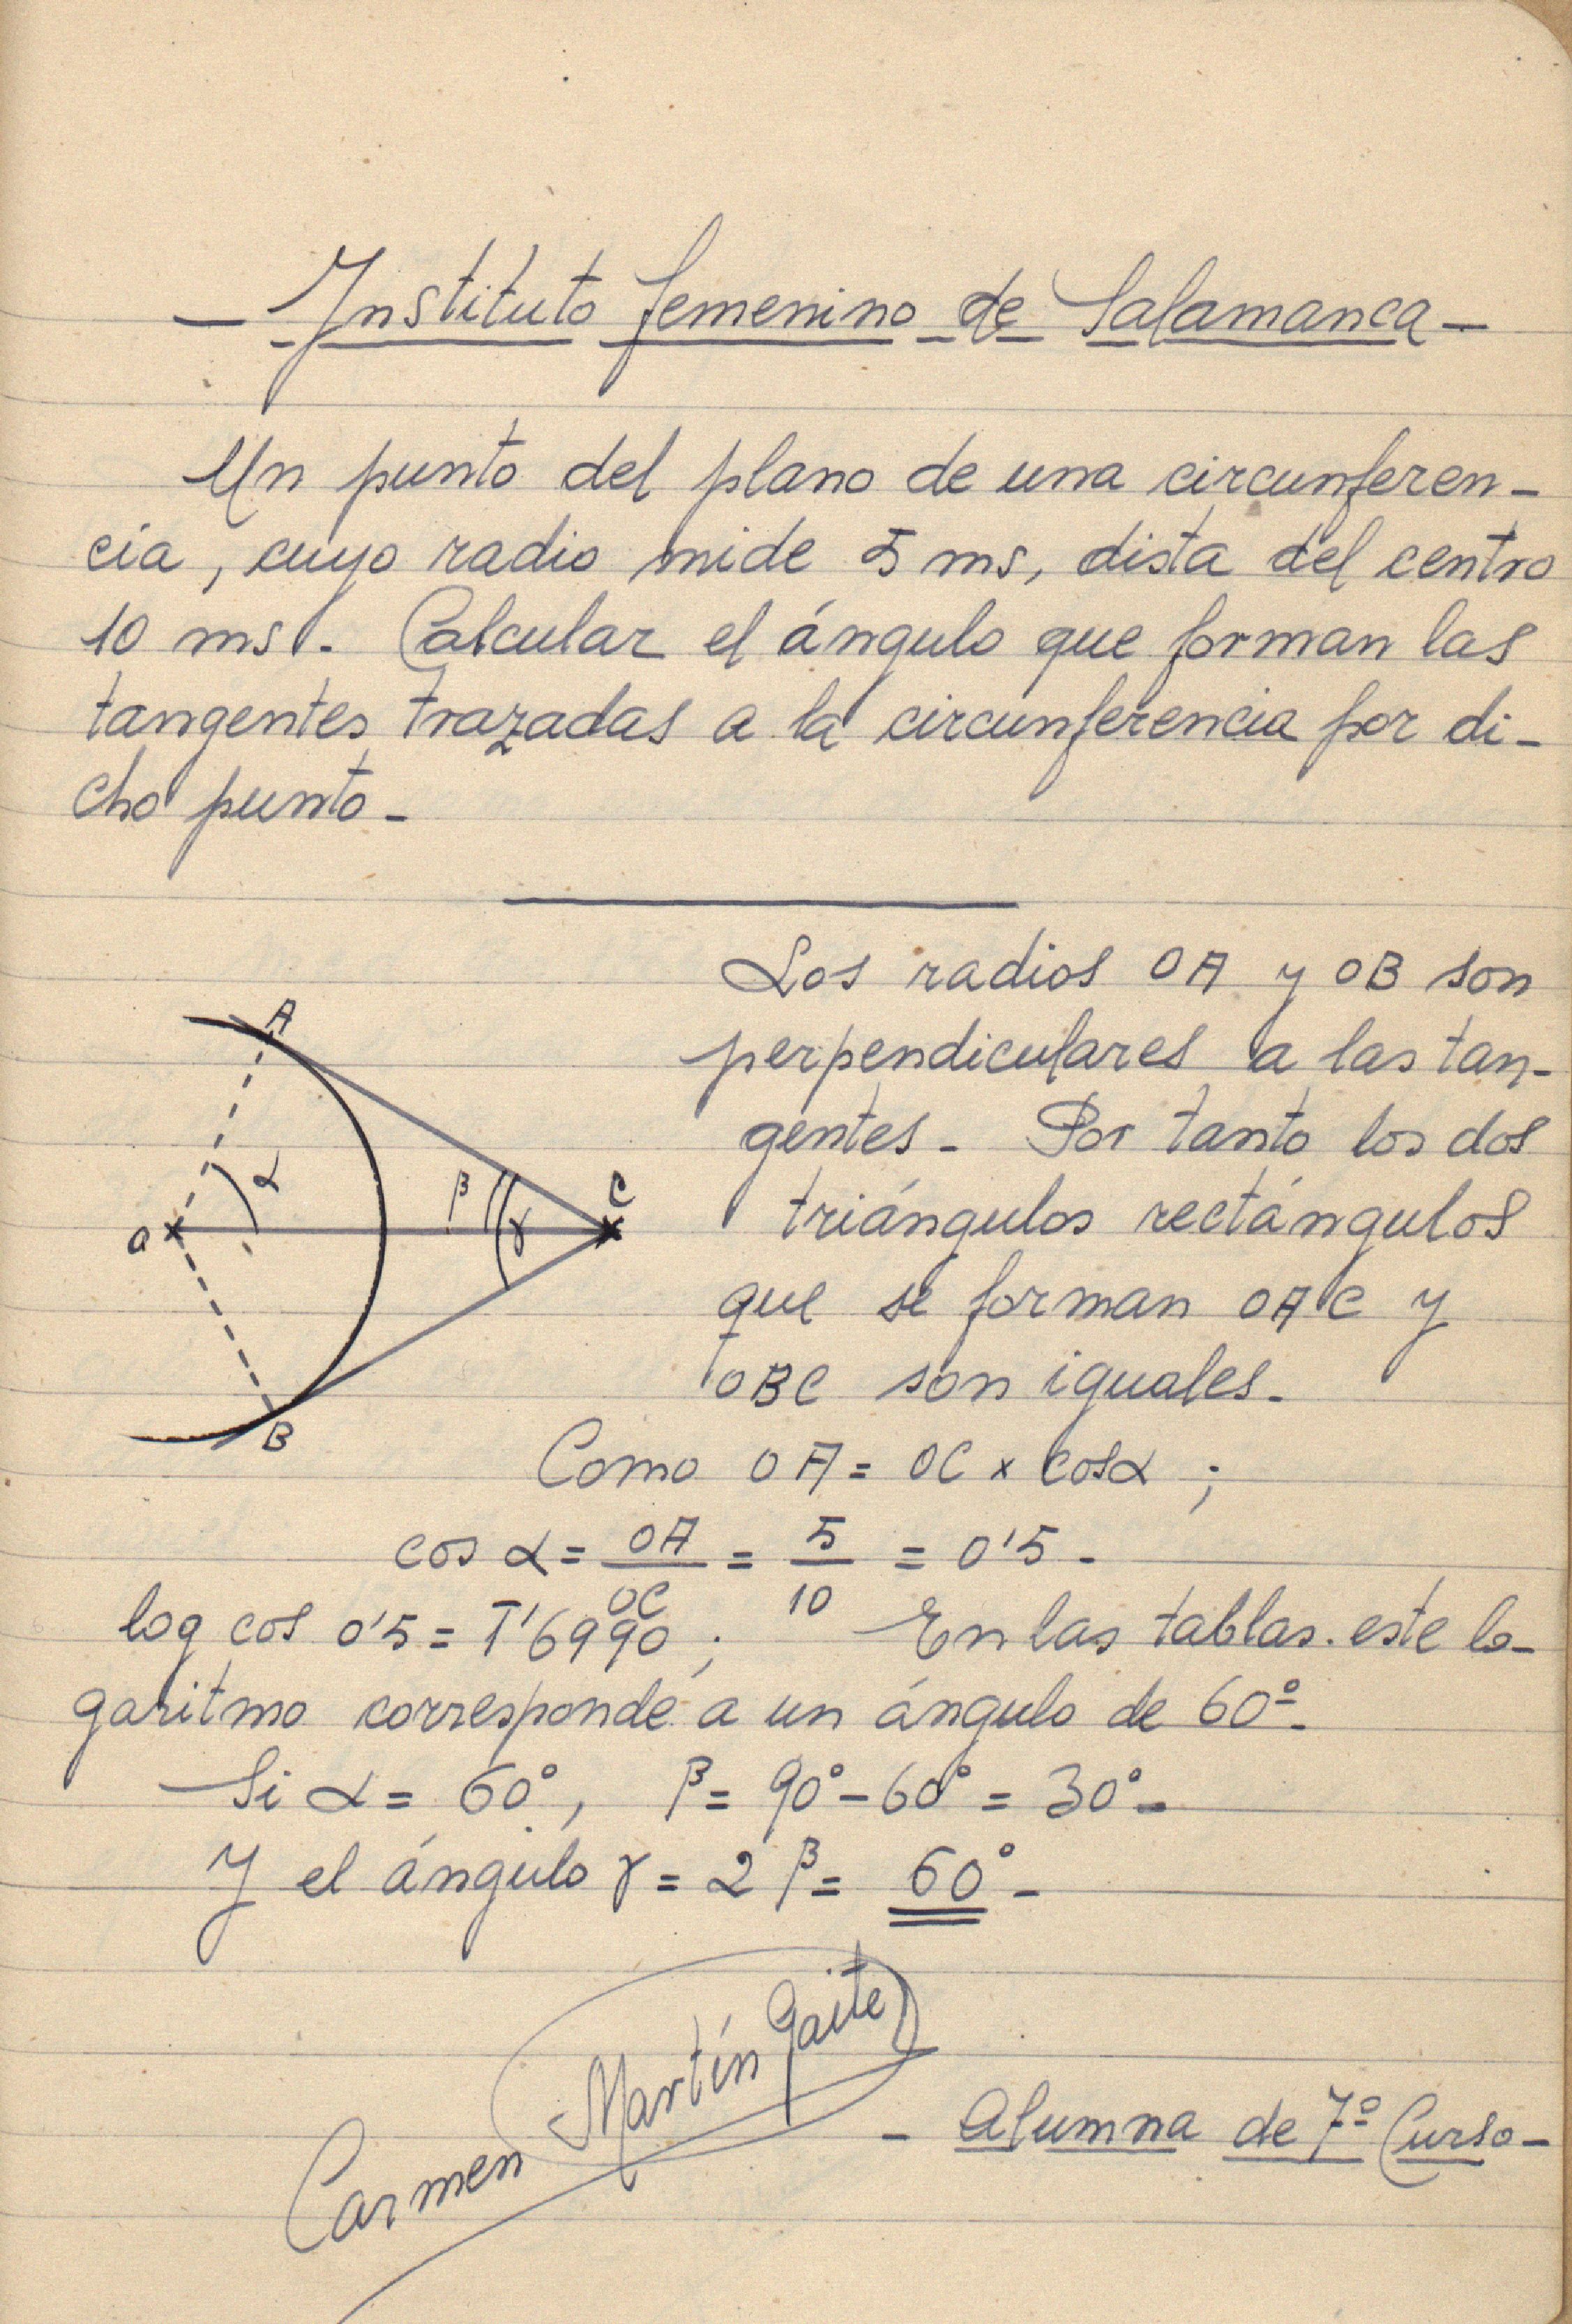 — Instituto femenino de Salamanca —
Un punto del plano de una circunferen-
cia, cuyo radio mide 5 ms, dista del centro
10 ms. Calcular el ángulo que forman las
tangentes trazadas a la circunferencia por di-
cho punto -
Los radios OA y OB son
perpendiculares a las tan-
gentes - Por tanto los dos
triángulos rectángulos
que se forman OAC y
OBC son iguales -
A
α
β
C
O
γ
B
Como OA = OC x cosα ;
cos α = OA/OC = 5/10 = 0'5 -
log cos 0'5 = 1̅'6990 ; En las tablas este lo-
garitmo corresponde a un ángulo de 60º -
Si α = 60°, β = 90° - 60° = 30° -
Y el ángulo γ = 2 β = 60° -
Carmen Martín Gaite
- Alumna de 7º Curso -